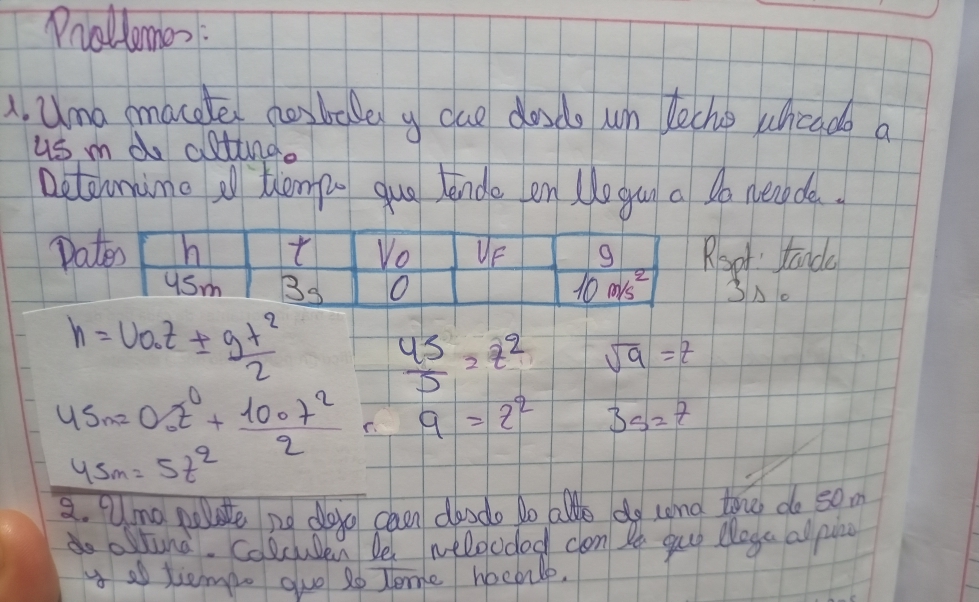 Problemas:
1. Una maceta resbala y cae desde un techo ubicado a
45 m de altura.
Determine el tiempo que tarda en llegar a la vereda.
Datos h t VO VF g Rspt: tarda
45m 3s 0 10 m/s² 3s.
h = V0.t ± gt²/2
45/5 = t² √9 = t
45m = 0.t⁰ + 10.t²/2
9 = t² 3s = t
45m = 5t²
2. Una pelota se deja caer desde lo alto de una torre de 50 m
de altura. Calculen la velocidad con la que llega al piso
y el tiempo que le tome hacerlo.